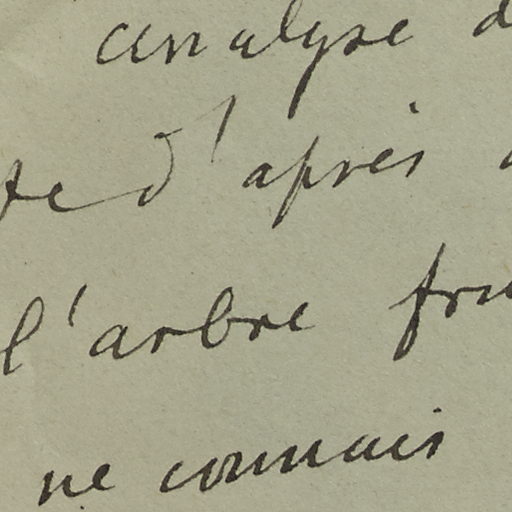 analyse d
te d'après
l'arbre fru
ne connais